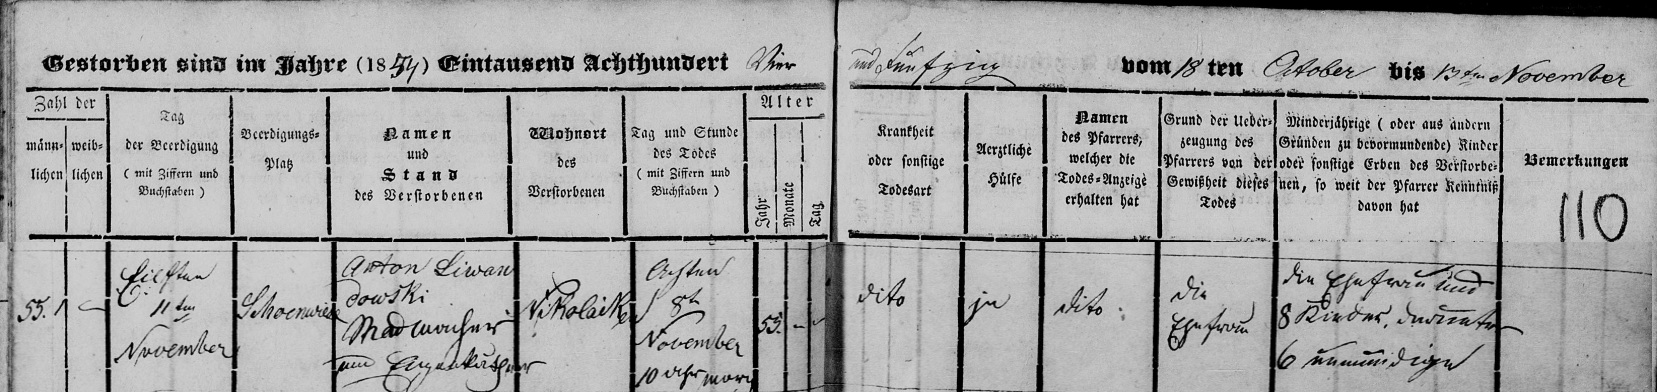 Gestorben sind im Jahre (1854) Eintausend Achthundert Vier und Fünfzig vom 18 ten October bis 13ten November
Zahl der
männ-
lichen
weib-
lichen
Tag
der Beerdigung
( mit Ziffern und
Buchstaben )
Beerdigungs-
Platz
Namen
und
Stand
des Verstorbenen
Wohnort
des
Verstorbenen
Tag und Stunde
des Todes
( mit Ziffern und
Buchstaben )
Alter
Jahr
Monate
Tag
Krankheit
oder sonstige
Todesart
Aerztliche
Hülfe
Namen
des Pfarrers,
welcher die
Todes-Anzeige
erhalten hat
Grund der Ueber-
zeugung des
Pfarrers von der
Gewißheit dieses
Todes
Minderjährige ( oder aus andern
Gründen zu bevormundende) Kinder
oder sonstige Erben des Verstorbe-
nen, so weit der Pfarrer Kenntniß
davon hat
Bemerkungen
110
55. 1 -
Eilften
11ten
November
Schoenwiese
Anton Liwan
dowski
Radmacher
und Eigenkäthner
Nikolaiken
Achten
8t
November
10 Uhr morg
55. - -
dito
ja
dito
die
Ehefrau
die Ehefrau und
8 Kinder, darunter
6 unmündige